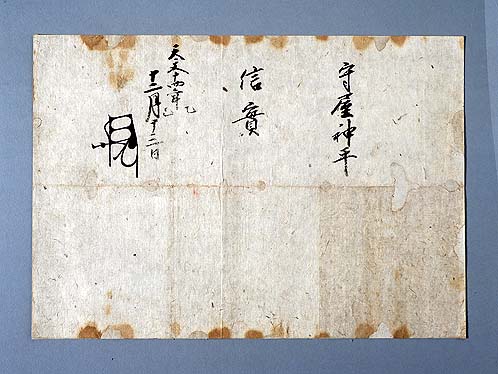 守屋神平
信實
天文十四年乙巳
十二月十二日